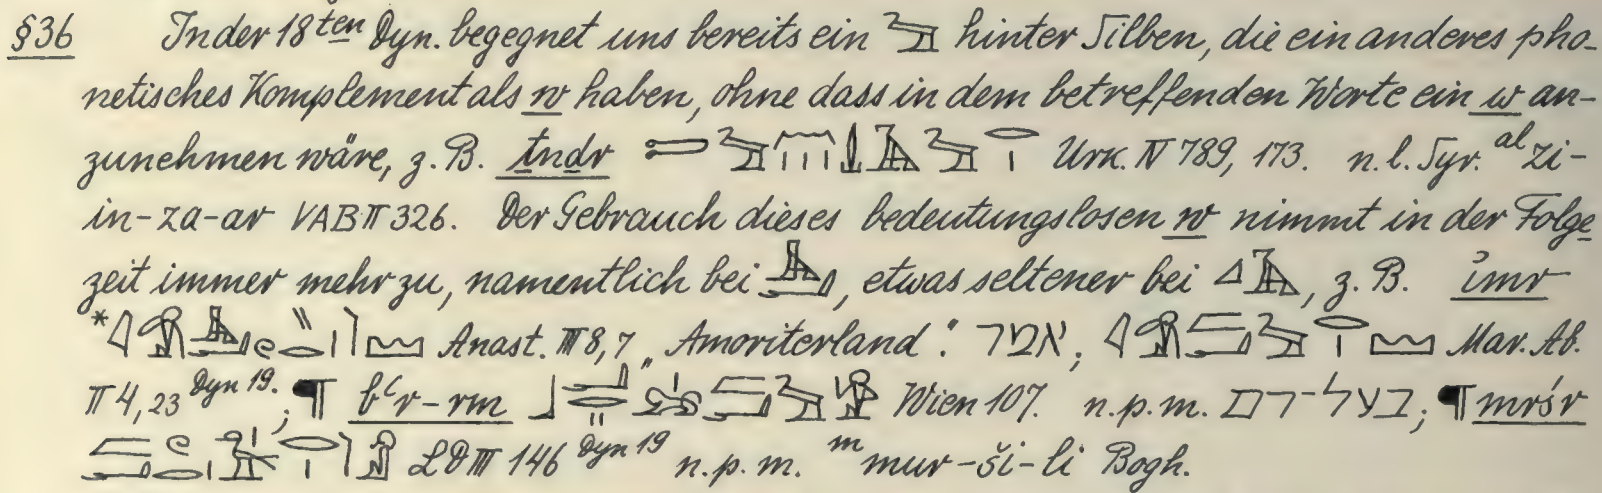 §36 In der 18ten Dyn. begegnet uns bereits ein hinter Silben, die ein anderes pho-
netisches Komplement als w haben, ohne dass in dem betreffenden Worte ein w an-
zunehmen wäre, z.B. ṯndr Urk. IV 789, 173. n.l. Syr. al zi-
in-za-ar VAB II 326. Der Gebrauch dieses bedeutungslosen w nimmt in der Folge-
zeit immer mehr zu, namentlich bei , etwas seltener bei , z.B. imr
* Anast. III 8,7 „Amoriterland": אמר; Mar. Ab.
II 4,23 Dyn 19.; ¶ bʿr-rm Wien 107. n.p.m. בעל-רם; ¶ mrśr
LD III 146 Dyn 19 n.p.m. m mur-ši-li Bogh.